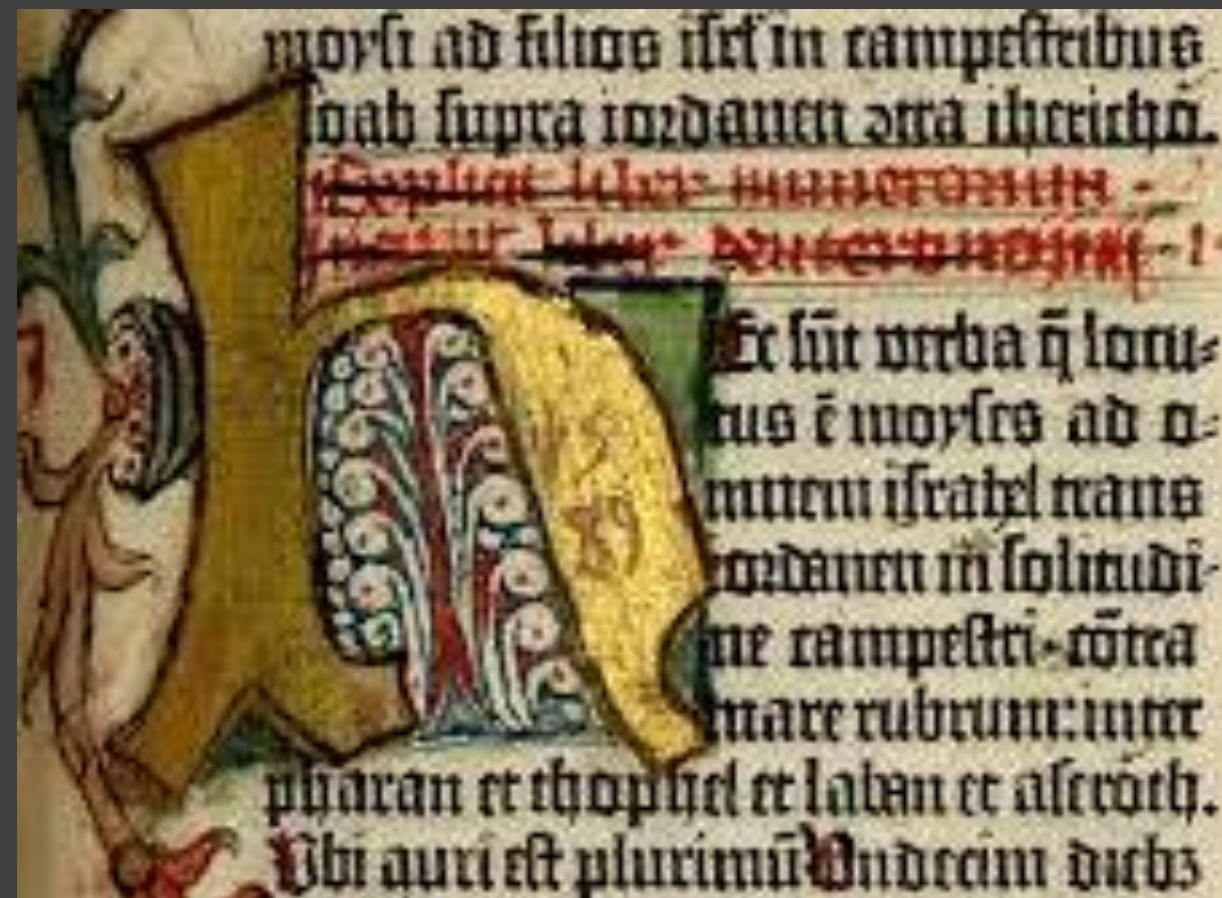 moysi ad filios isrł in campestribus
moab supra iordanen ɔtra ihericho.
Explicit liber numerorum
Incipit liber
HEc sūt verba q̄ locu-
tus ē moyses ad o-
mnem israhel trans
iordanen in solitudi-
ne campestri· cōtra
mare rubrum: inter
pharan et thophel et laban et aseroth.
Ubi auri est plurimū Undecim dieb3